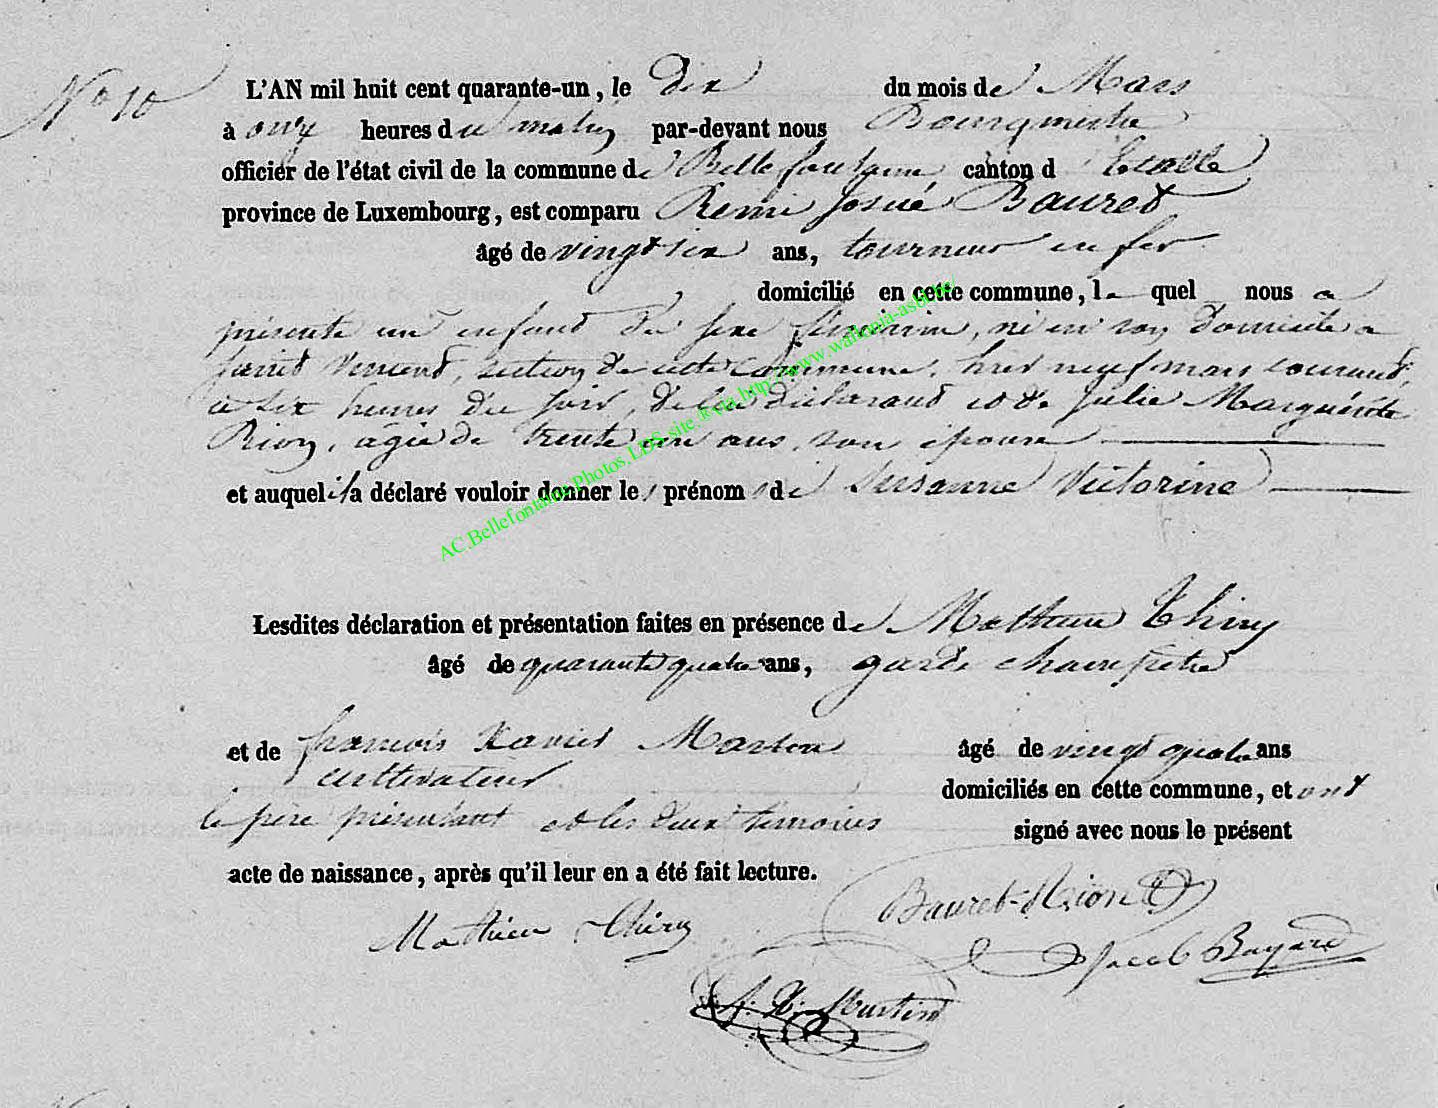 No 10
L'AN mil huit cent quarante-un, le dix du mois de Mars
à onze heures du matin par-devant nous Bourgmestre
officier de l'état civil de la commune de Bellefontaine canton d' Etalle
province de Luxembourg, est comparu Remi Josué Bauret
âgé de vingt six ans, tourneur en fer
domicilié en cette commune, le quel nous a
présenté un enfant du sexe féminin, né en son domicile a
Saint Vincent, section de cette commune, hier neuf mars courant,
a six heures du soir, de lui déclarant et de Julie Marguérite
Rion, agée de trente un ans, son épouse
et auquel il a déclaré vouloir donner les prénoms de Susanne Victorine
Lesdites déclaration et présentation faites en présence de Mathieu Thiry
âgé de quarante quatre ans, garde champêtre
et de françois Xavier Martin âgé de vingt quatre ans
cultivateur domiciliés en cette commune, et ont
le père présentant et les deux témoins signé avec nous le présent
acte de naissance, après qu'il leur en a été fait lecture.
Bauret-Rion
Mathieu Thiry
Jacob Bayard
f. X. Martin
AC.Bellefontaine.Photos.LDS.site.fr.via.http://www.wallonia-asbl.be/